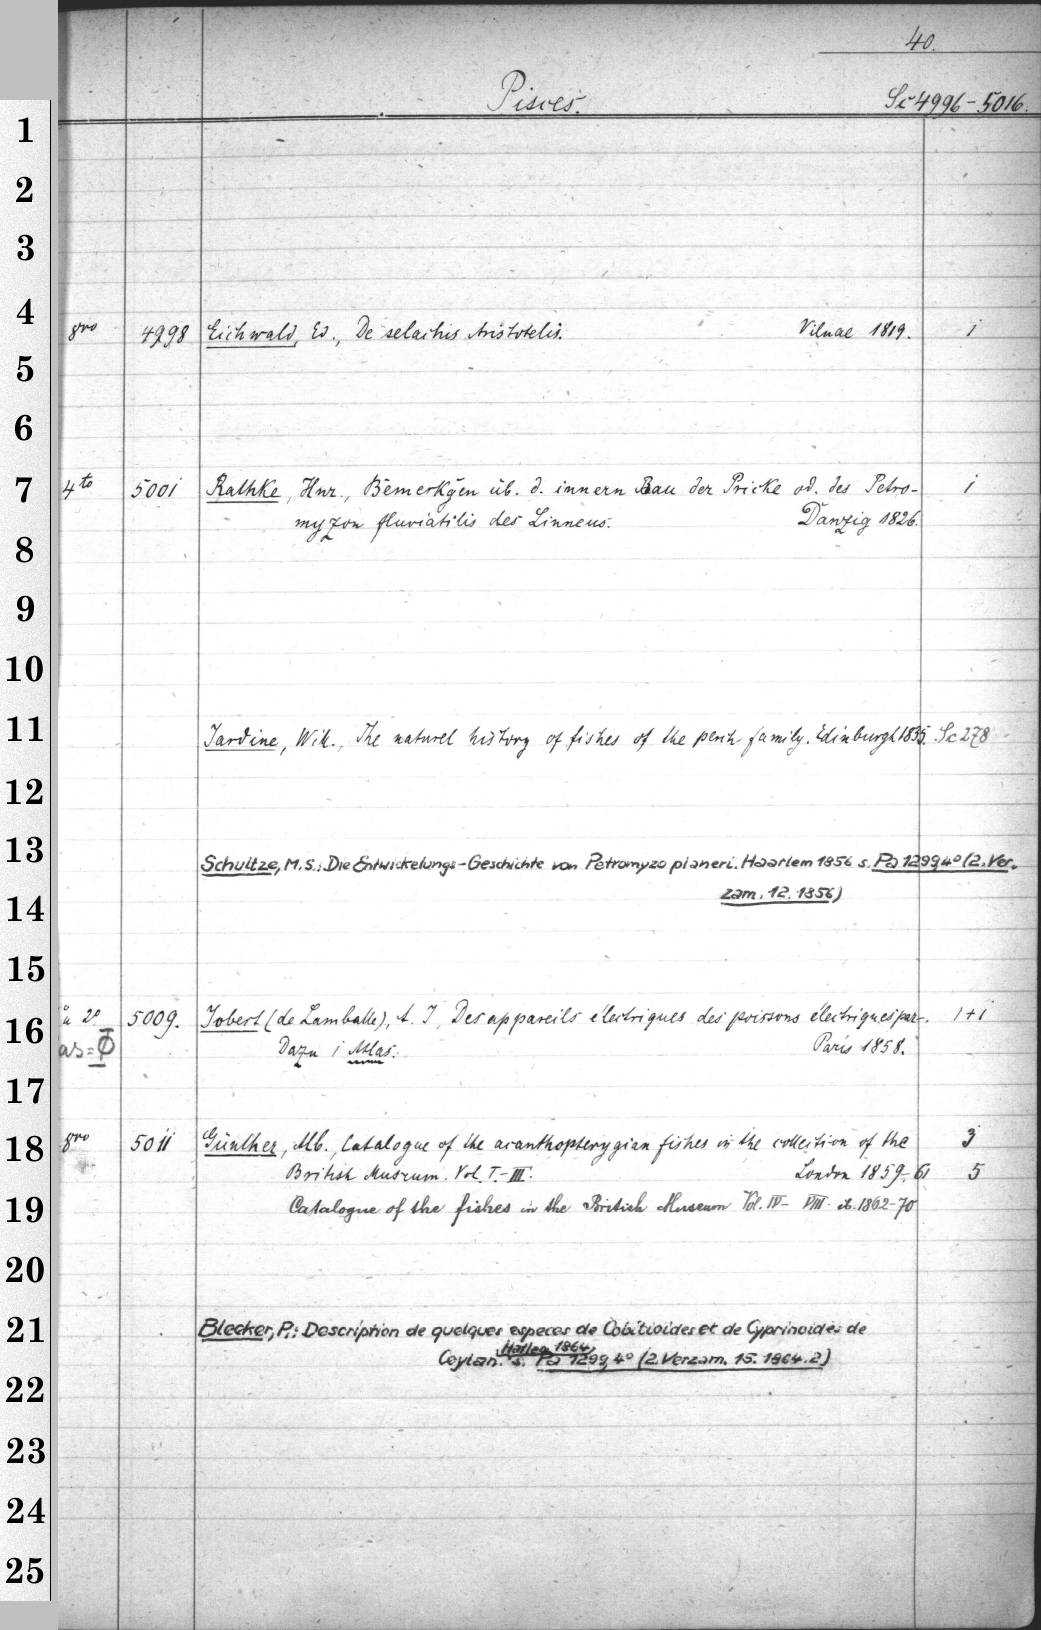 40.
Pisces. Sc 4996-5016.
1
2
3
4
8vo 4998 Eichwald, Ed., De selachis Aristotelis. Vilnae 1819. 1
5
6
7 4to 5001 Rathke, Hnr., Bemerkgen üb. d. innern Bau der Pricke od. des Petro- 1
myzon fluviatilis des Linneus. Danzig 1826.
8
9
10
11 Jardine, Wil., The naturel history of fishes of the perch family. Edinburgh 1835. Sc 278
12
13 Schultze, M.S.: Die Entwickelungs-Geschichte von Petromyzo planeri. Haarlem 1856 s. Pa 1299 4° (2. Ver-
14 zam. 12. 1856)
15
16 2° 5009. Jobert (de Lamballe), A. J., Des appareils électriques des poissons électriques par-. 1+1
as = Φ Dazu 1 Atlas. Paris 1858.
17
18 8vo 5011 Günther, Alb., Catalogue of the acanthopterygian fishes in the collection of the 3
British Museum. Vol. I-III. London 1859-61 5
19 Catalogue of the fishes in the British Museum Vol. IV- VIII. ib. 1862-70
20
21 Blecker, P.: Description de quelques especes de Cobitioides et de Cyprinoides de
Hallea 1864
Ceylan. s. Pa 1299, 4° (2. Verzam. 15. 1864. 2)
22
23
24
25